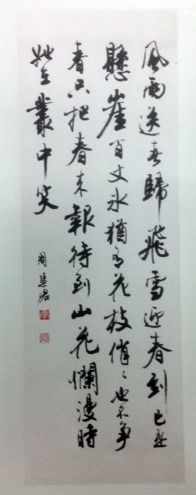 風雨送春歸飛雪迎春到已是
懸崖百丈冰猶有花枝俏〻也不爭
春只把春来報待到山花爛漫時
她在叢中笑
周慧珺